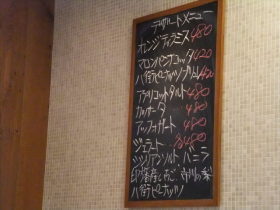 デザートメニュー
オレンジティラミス 480
マロンパンナコッタ 420
八街ピーナッツブリュレ 420
アプリコットタルト 480
カッサータ 480
アッフォガート 480
ジェラート 各480
シシリアンソルト、バニラ
市川の梨
八街ピーナッツ